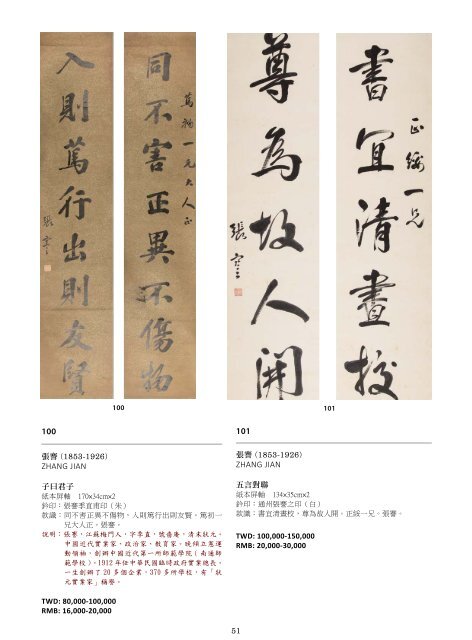 同不害正異不傷物
篤初一兄大人正
入則篤行出則友賢
張謇
書宜清晝校
正綏一兄
尊為故人開
張謇
100
101
100
張謇 (1853-1926)
ZHANG JIAN
子曰君子
紙本屏軸 170x34cmx2
鈐印：張謇季直甫印（朱）
款識：同不害正異不傷物，入則篤行出則友賢。篤初一
兄大人正。張謇。
說明：張謇，江蘇海門人，字季直，號嗇庵，清末狀元。
中國近代實業家、政治家、教育家。晚傾立憲運
動領袖，創辦中國近代第一所師範學院（南通師
範學校）。1912 年任中華民國臨時政府實業總長。
一生創辦了 20 多個企業，370 多所學校，有「狀
元實業家」稱譽。
TWD: 80,000-100,000
RMB: 16,000-20,000
101
張謇 (1853-1926)
ZHANG JIAN
五言對聯
紙本屏軸 134x35cmx2
鈐印：通州張謇之印（白）
款識：書宜清晝校，尊為故人開。正綏一兄。張謇。
TWD: 100,000-150,000
RMB: 20,000-30,000
51